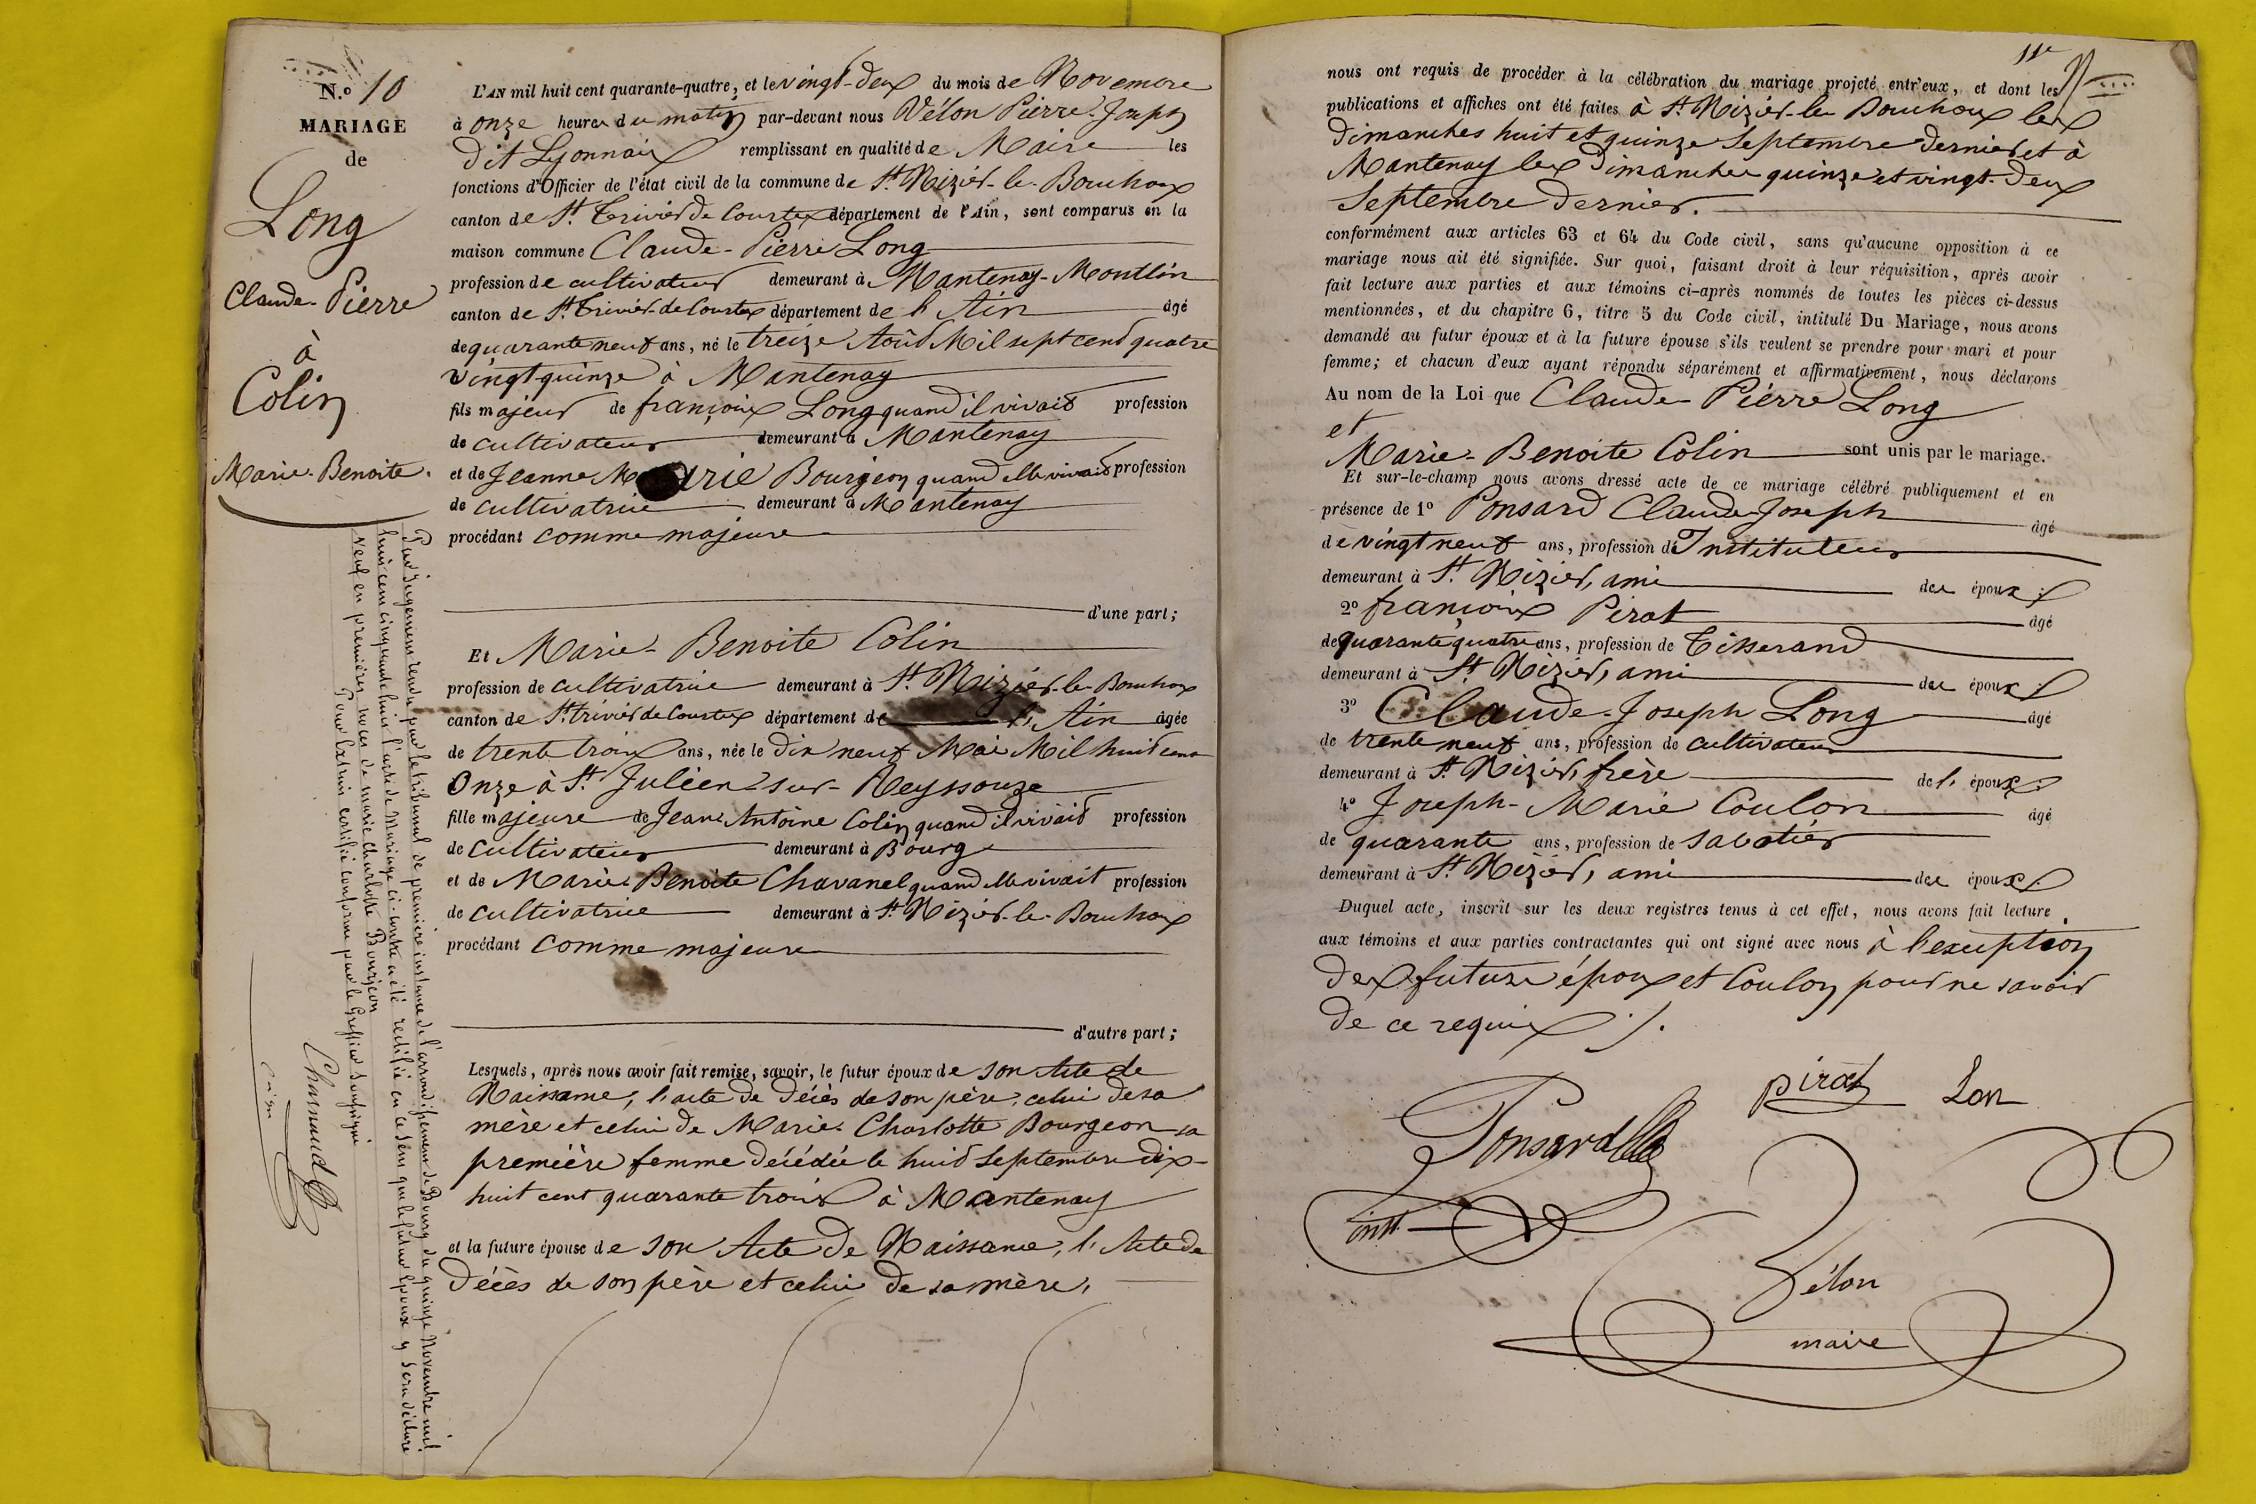 N.º 10
MARIAGE
de
Long
Claude-Pierre
à
Colin
Marie-Benoite.
Par jugement rendu par le tribunal de première instance de l'arrondissement de Bourg du quinze Novembre mil
huit cent cinquante huit l'acte de Mariage ci-contre a été rectifié en ce sens que le futur époux y sera déclaré
veuf en premières noces de Marie Charlotte Bourgeon
Pour extrait certifié conforme par le Greffier soussigné
L'AN mil huit cent quarante-quatre, et le vingt-deux du mois de Novembre
à onze heures du matin par-devant nous Vélon Pierre-Joseph
dit Lyonnais remplissant en qualité de Maire les
fonctions d'Officier de l'état civil de la commune de St. Nizier-le-Bouchoux
canton de St. Trivier de Courtes département de l'Ain, sont comparus en la
maison commune Claude-Pierre Long
profession de cultivateur demeurant à Mantenay-Montlin
canton de St. Trivier-de Courtes département de l'Ain âgé
de quarante neuf ans, né le treize Août Mil sept cent quatre
vingt quinze à Mantenay
fils majeur de françois Long quand il vivait profession
de cultivateur demeurant à Mantenay
et de Jeanne Marie Bourgeon quand elle vivait profession
de cultivatrice demeurant à Mantenay
procédant comme majeure
d'une part;
Et Marie-Benoite Colin
profession de cultivatrice demeurant à St. Nizier-le-Bouchoux
canton de St. trivier de Courtes département de l'Ain âgée
de trente trois ans, née le dix neuf Mai Mil huit cent
Onze à St. Julien-sur-Reyssouze
fille majeure de Jean Antoine Colin quand il vivait profession
de cultivateur demeurant à Bourg
et de Marie Benoite Chavanel quand elle vivait profession
de cultivatrice demeurant à St. Nizier-le-Bouchoux
procédant comme majeure
d'autre part;
Lesquels, après nous avoir fait remise, savoir, le futur époux de son Acte de
Naissance, l'acte de décès de son père, celui de sa
mère et celui de Marie Charlotte Bourgeon sa
première femme décédée le huit Septembre dix-
huit cent quarante trois à Mantenay
et la future épouse de son Acte de Naissance, l'Acte de
décès de son père et celui de sa mère.
11e
nous ont requis de procéder à la célébration du mariage projeté entr'eux, et dont les
publications et affiches ont été faites à St. Nizier-le-Bouchoux les
dimanches huit et quinze Septembre dernier et à
Mantenay les dimanches quinze et vingt-deux
Septembre dernier.
conformément aux articles 63 et 64 du Code civil, sans qu'aucune opposition à ce
mariage nous ait été signifiée. Sur quoi, faisant droit à leur réquisition, après avoir
fait lecture aux parties et aux témoins ci-après nommés de toutes les pièces ci-dessus
mentionnées, et du chapitre 6, titre 5 du Code civil, intitulé Du Mariage, nous avons
demandé au futur époux et à la future épouse s'ils veulent se prendre pour mari et pour
femme; et chacun d'eux ayant répondu séparément et affirmativement, nous déclarons
Au nom de la Loi que Claude-Pierre Long
et
Marie-Benoite Colin sont unis par le mariage.
Et sur-le-champ nous avons dressé acte de ce mariage célébré publiquement et en
présence de 1º Ponsard Claude Joseph âgé
de vingt neuf ans, profession de Instituteur
demeurant à St. Nizier, ami des époux
2º françois Pirat âgé
de quarante quatre ans, profession de Tisserand
demeurant à St. Nizier, ami des époux
3º Claude-Joseph Long âgé
de trente neuf ans, profession de cultivateur
demeurant à St. Nizier, frère de l'époux
4º Joseph-Marie Coulon âgé
de quarante ans, profession de sabotier
demeurant à St. Nizier, ami des époux
Duquel acte, inscrit sur les deux registres tenus à cet effet, nous avons fait lecture
aux témoins et aux parties contractantes qui ont signé avec nous à l'exception
des future époux et Coulon pour ne savoir
de ce requis ./.
pirat Lon
Ponsard
inst
Vélon
maire